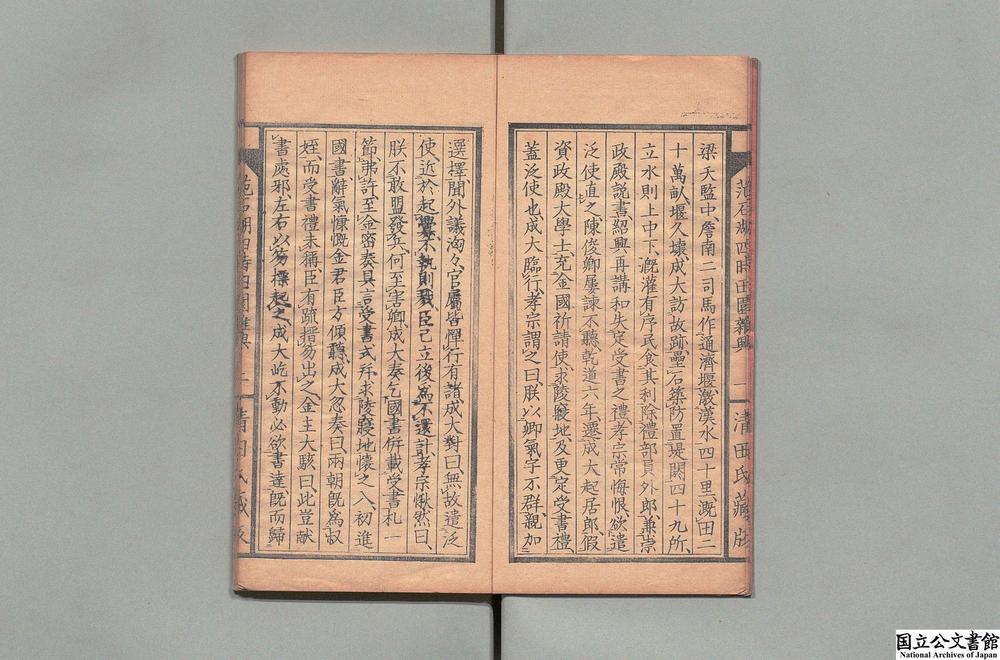 梁天監中、詹南二司馬作通濟堰、激漢水四十里、溉田二
十萬畝、堰久壞、成大訪故跡、壘石築防、置堤閘四十九所、
立水則、上中下、溉灌有序、民食其利、除禮部員外郎、兼崇
政殿説書、紹興再講和、失定受書之禮、孝宗常悔恨、欲遣
泛使直之、陳俊卿屢諫不聽、乾道六年、遷成大起居郎、假
資政殿大學士、充金國祈請使、求陵寢地、及更定受書禮、
蓋泛使也、成大臨行、孝宗謂之曰、朕以卿氣宇不群、親加
范石湖四時田園雜興 一 清田氏藏版
選擇、聞外議洶々、官屬皆憚行、有諸、成大對曰、無故遣泛
使、近於起釁、不執則戮、臣已立後、為不還計、孝宗愀然曰、
朕不敢盟發兵、何至害卿、成大奏乞國書併載受書札一
節、弗許、至金密奏具言受書式、并求陵寢地、懷之入、初進
國書、辭氣慷慨、金君臣方傾聽、成大忽奏曰、兩朝既為叔
姪、而受書禮未稱、臣有疏、搢笏出之、金主大駭曰、此豈獻
書處邪、左右以笏標起之、成大屹不動、必欲書達、既而歸
范石湖四時田園雜興 二 清田氏藏版
国立公文書館
National Archives of Japan